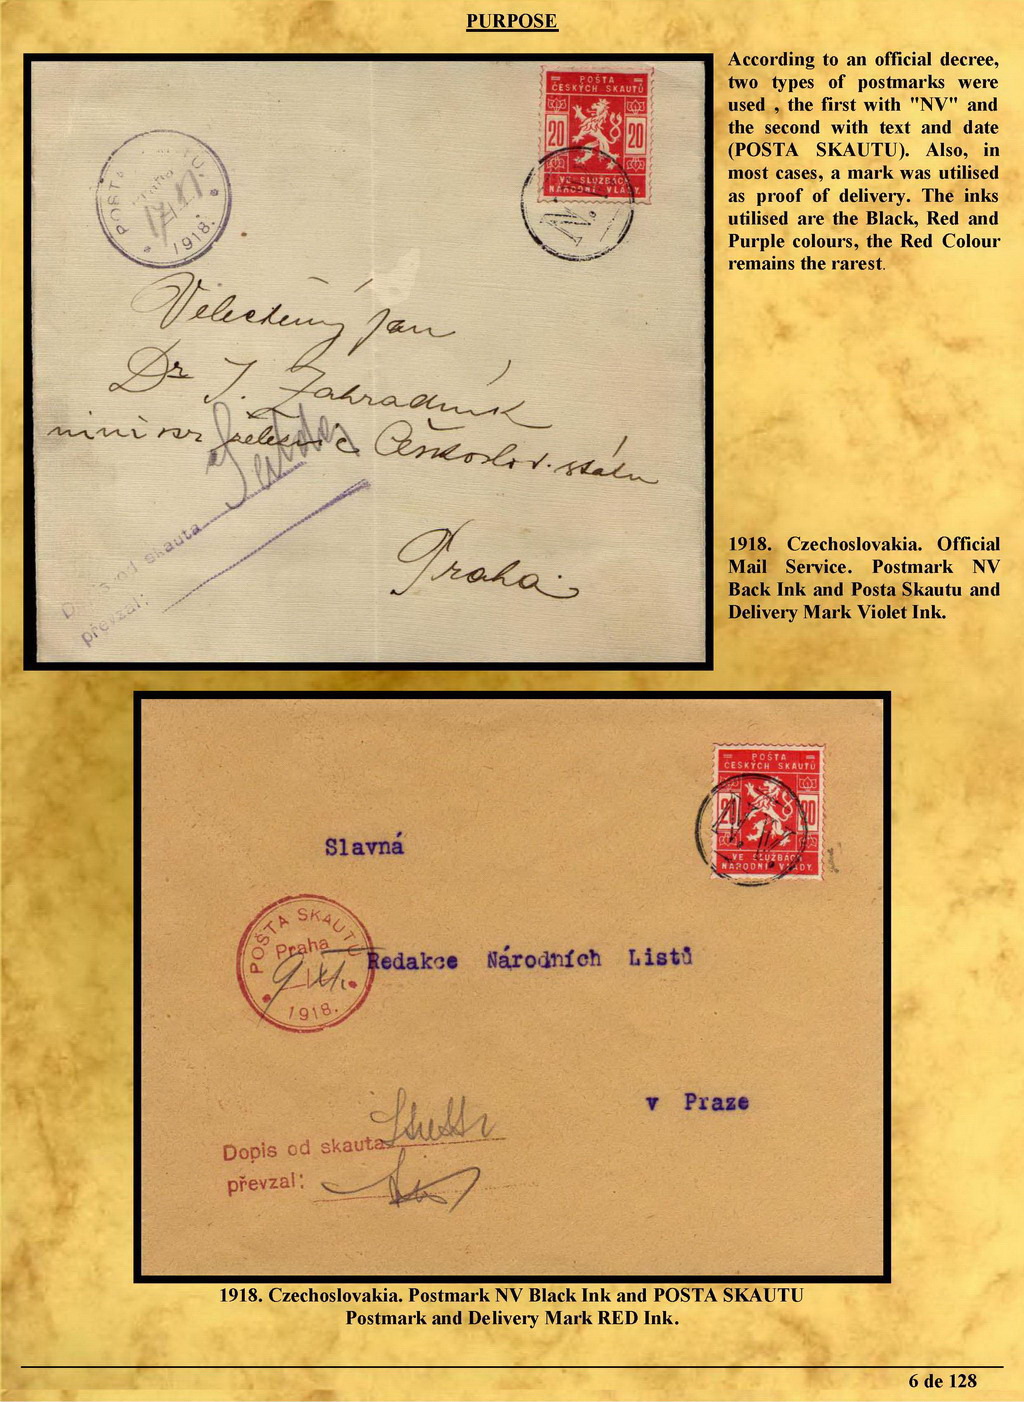 PURPOSE
According to an official decree,
two types of postmarks were
used , the first with "NV" and
the second with text and date
(POSTA SKAUTU). Also, in
most cases, a mark was utilised
as proof of delivery. The inks
utilised are the Black, Red and
Purple colours, the Red Colour
remains the rarest.
POŠTA
ČESKÝCH SKAUTŮ
20 20
VE SLUŽBÁCH
NÁRODNÍ VLÁDY.
Praha
1918.
Velectěný pan
Dr. I. Zahradník
ministr železnic Českoslov. státu
Praha
Dopis od skauta
převzal:
1918. Czechoslovakia. Official
Mail Service. Postmark NV
Back Ink and Posta Skautu and
Delivery Mark Violet Ink.
POŠTA
ČESKÝCH SKAUTŮ
20 20
VE SLUŽBÁCH
NÁRODNÍ VLÁDY.
NV
Slavná
POŠTA SKAUTŮ
Praha
1918.
Redakce Národních Listů
v Praze
Dopis od skauta
převzal:
1918. Czechoslovakia. Postmark NV Black Ink and POSTA SKAUTU
Postmark and Delivery Mark RED Ink.
6 de 128